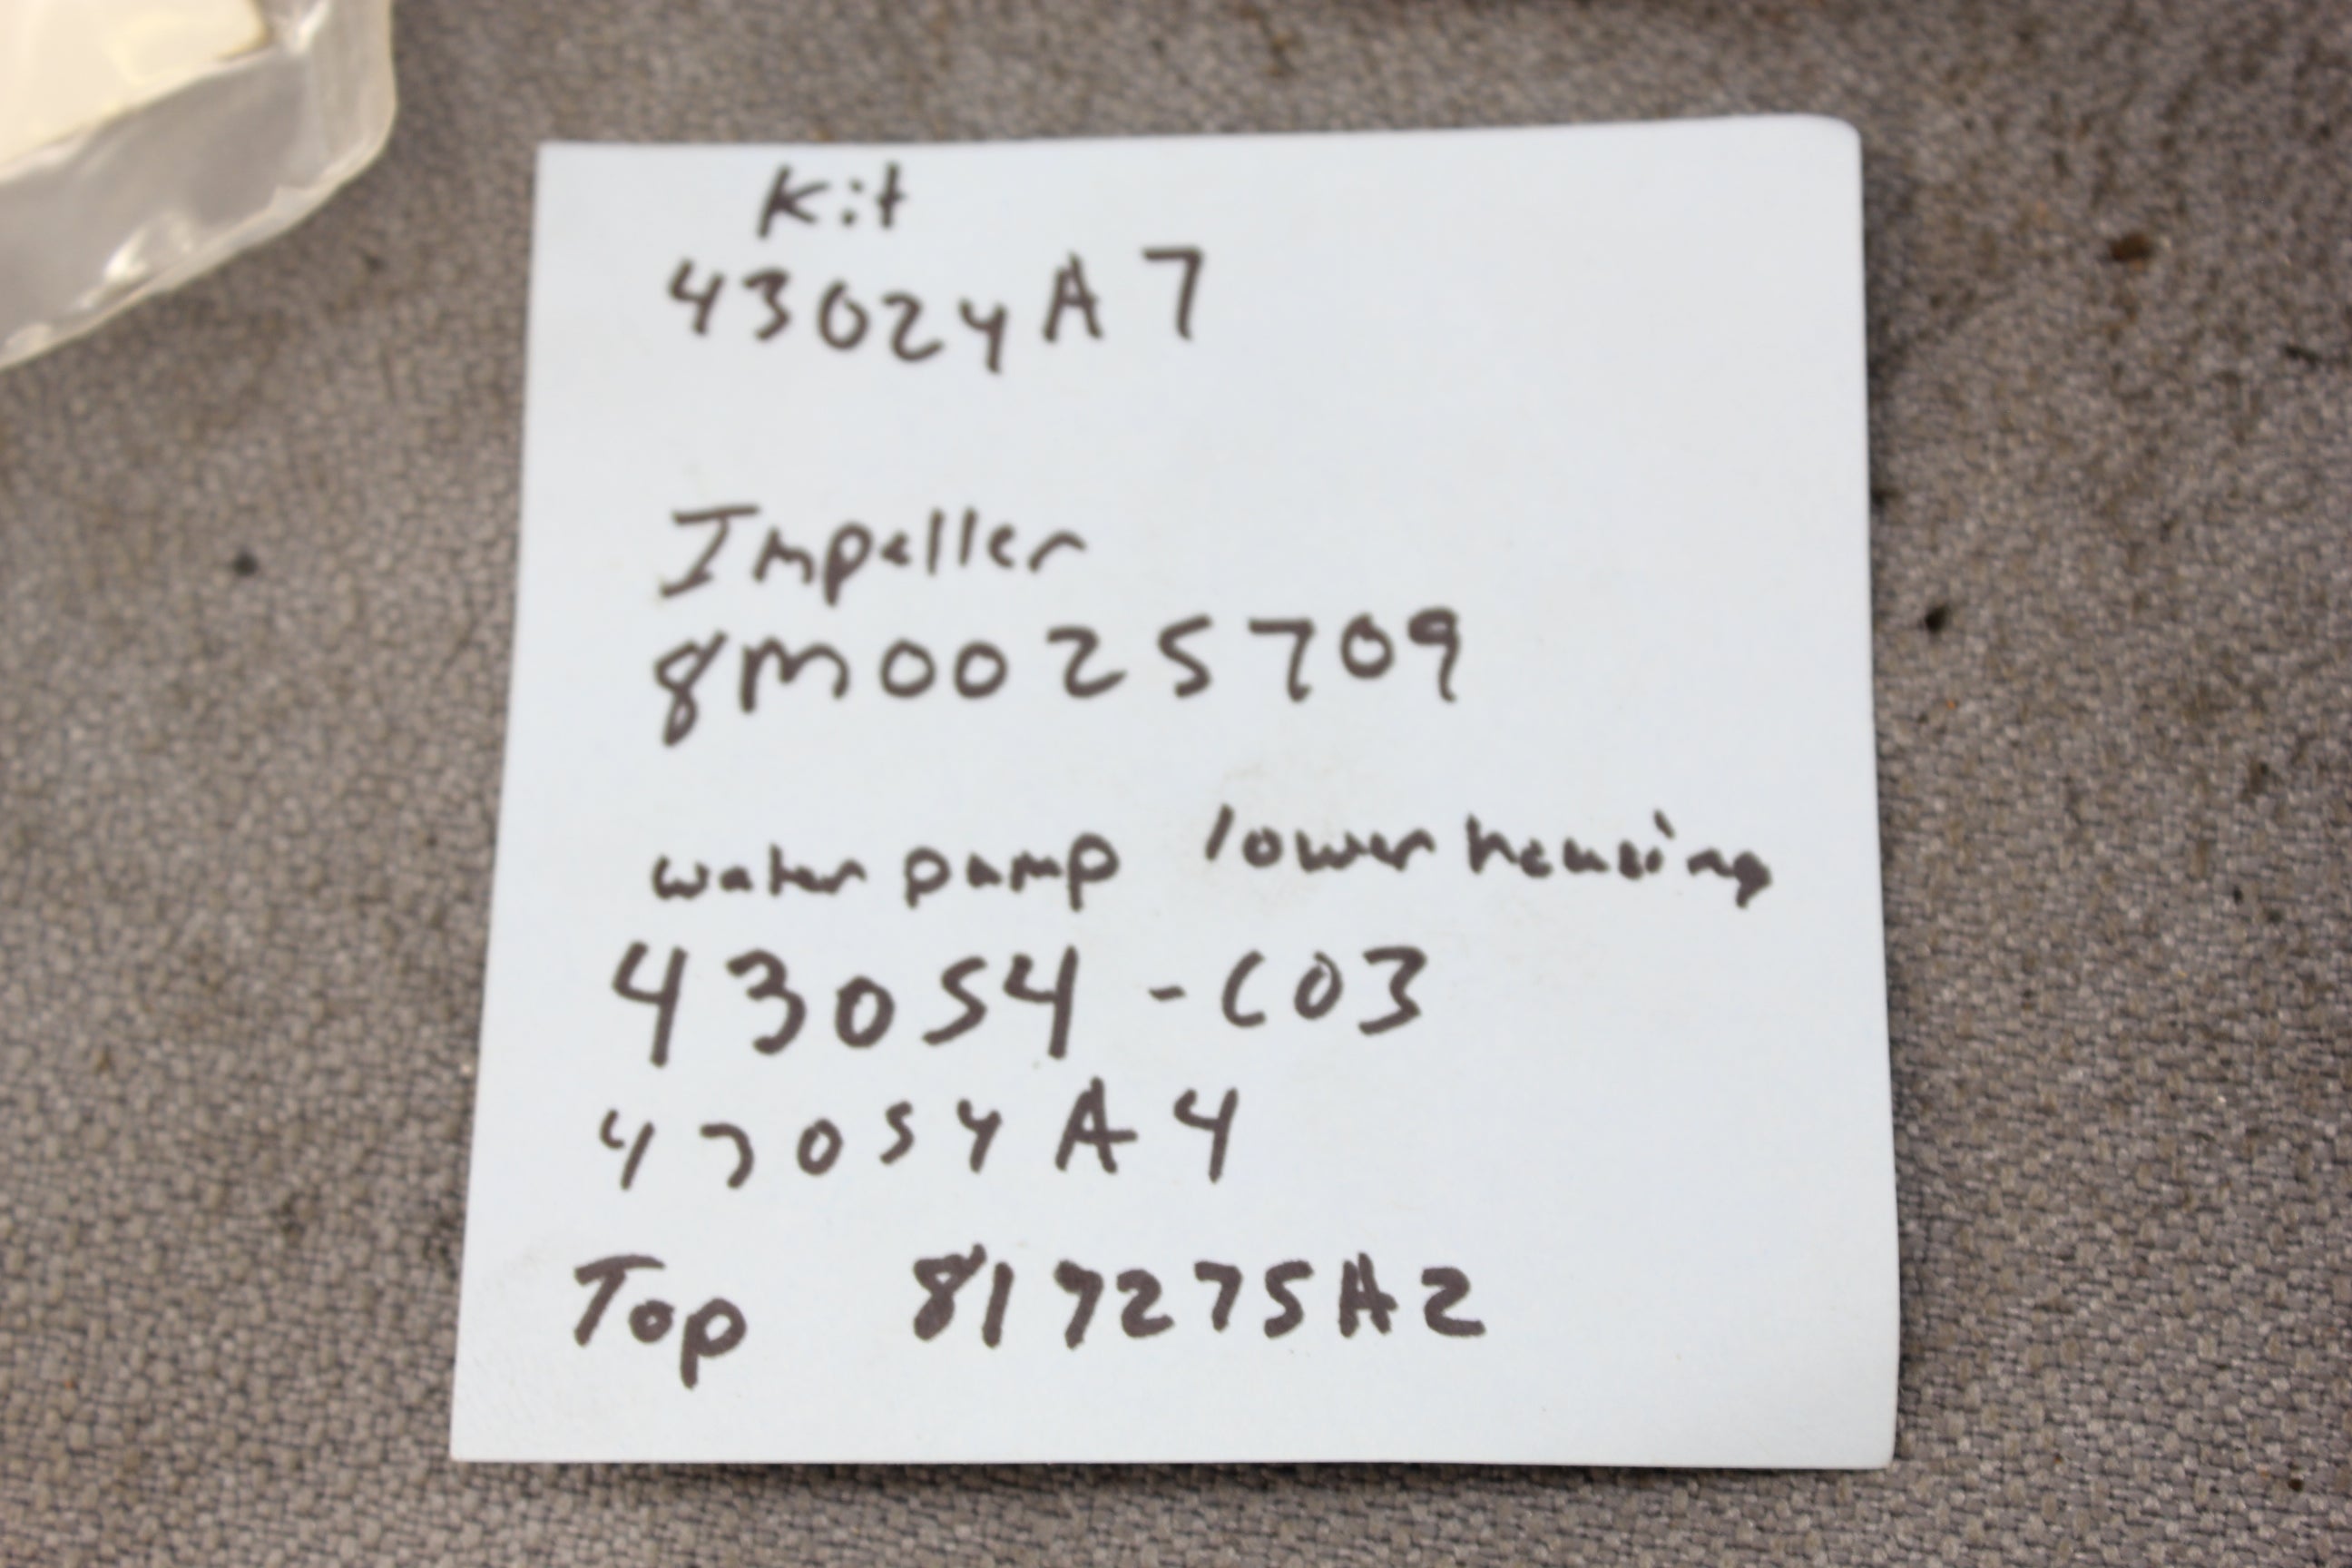 Kit
43024A7
Impeller
8M0025709
water pump lower housing
43054-C03
43054A4
Top 817275A2